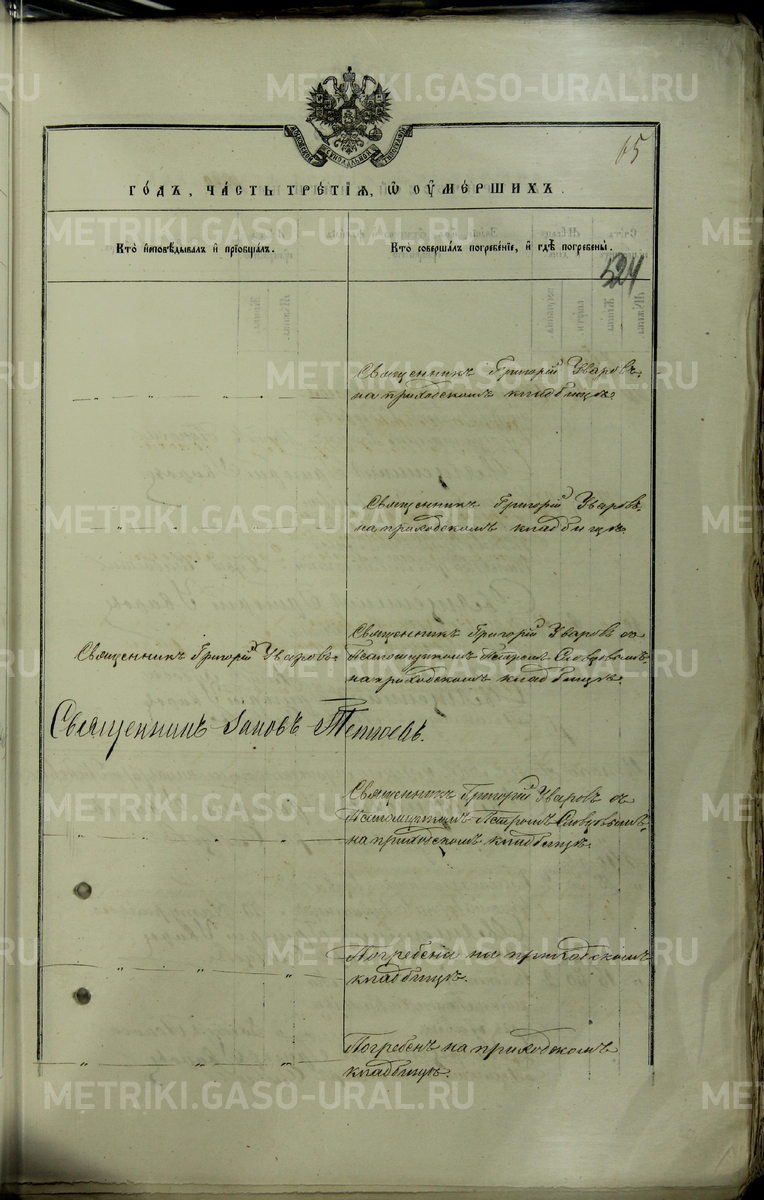 METRIKI.GASO-URAL.RU
65
МОСКОВСКОЙ СѴНОДАЛЬНОЙ ТИПОГРАФІИ
ГО́ДЪ, ЧА́СТЬ ТРЕ́ТІѦ, Ѡ҆ ОУ҆МЕ́РШИХЪ.
Кто̀ и҆сповѣ́дывалъ и҆ прїѡбща́лъ.
Кто̀ соверша́лъ погребе́нїе, и҆ гдѣ̀ погребены̀.
524
Священникъ Григорій Уваровъ,
на приходскомъ кладбищѣ.
Священникъ Григорій Уваровъ,
на приходскомъ кладбищѣ.
Священникъ Григорій Уваровъ.
Священникъ Григорій Уваровъ съ
Псаломщикомъ Петромъ Словцовымъ,
на приходскомъ кладбищѣ.
Священникъ Іаковъ
Священникъ Григорій Уваровъ съ
Псаломщикомъ Петромъ Словцовымъ,
на приходскомъ кладбищѣ.
Погребена на приходскомъ
кладбищѣ.
Погребенъ на приходскомъ
кладбищѣ.